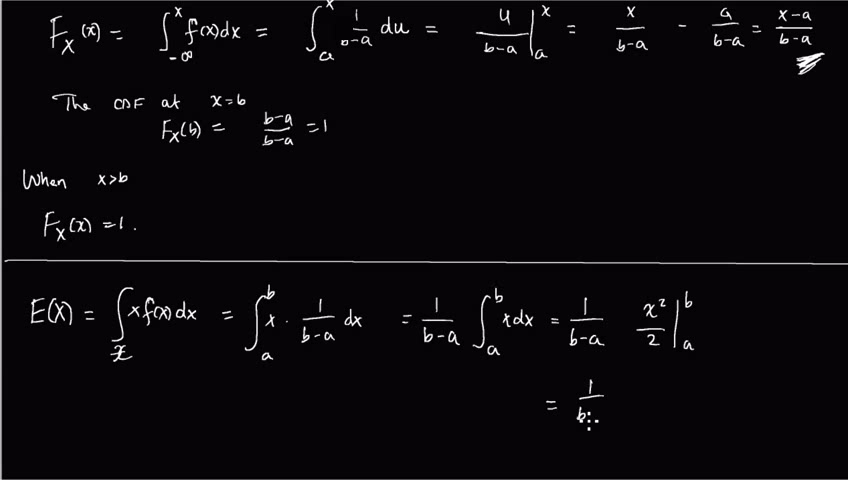 F_X(x) = ∫_{-∞}^{x} f(x)dx = ∫_{a}^{x} 1/(b-a) du = u/(b-a) |_{a}^{x} = x/(b-a) - a/(b-a) = (x-a)/(b-a)
The CDF at x=b
F_X(b) = (b-a)/(b-a) = 1
When x>b
F_X(x) = 1.
E(X) = ∫_{x} x f(x) dx = ∫_{a}^{b} x · 1/(b-a) dx = 1/(b-a) ∫_{a}^{b} x dx = 1/(b-a) x²/2 |_{a}^{b}
= 1/b